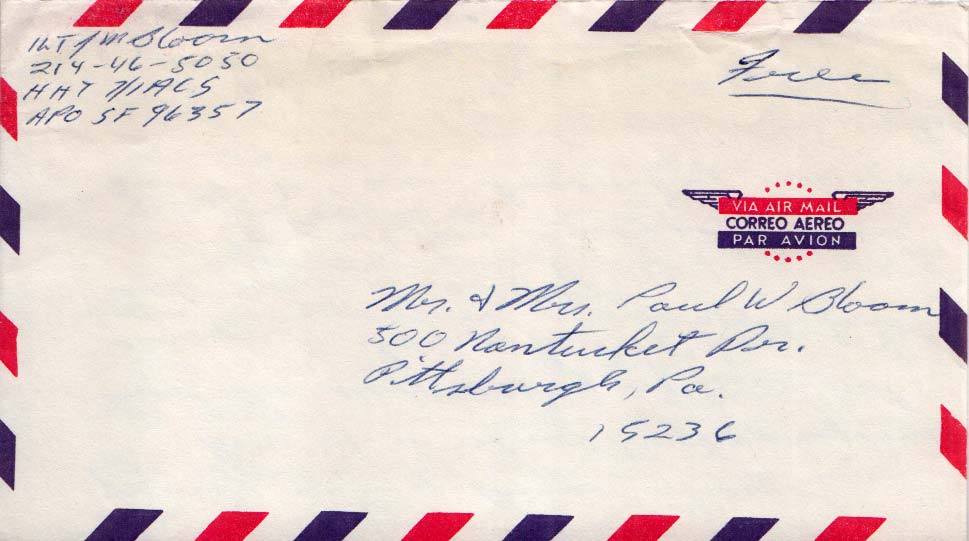 1LT J M Bloom
214-46-5050
HHT 7/1 ACS
APO SF 96357
Free
VIA AIR MAIL
CORREO AEREO
PAR AVION
Mr. & Mrs. Paul W Bloom
500 Nantucket Dr.
Pittsburgh, Pa.
15236